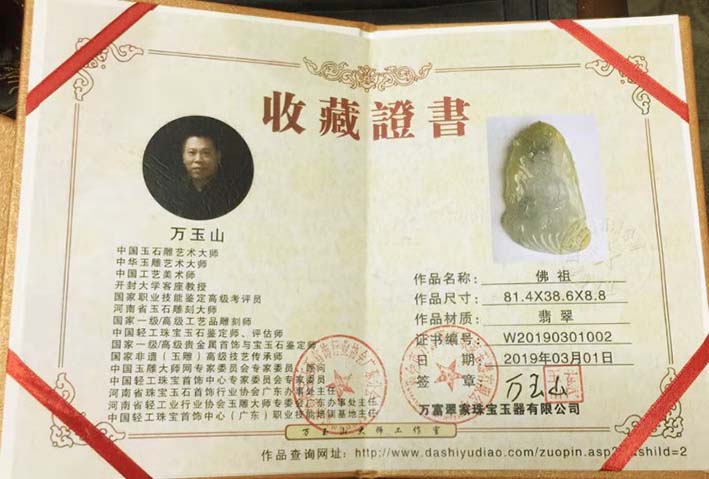 收藏證書
万玉山
中国玉石雕艺术大师
中华玉雕艺术大师
中国工艺美术师
开封大学客座教授
国家职业技能鉴定高级考评员
河南省玉石雕刻大师
国家一级/高级工艺品雕刻师
中国轻工珠宝玉石鉴定师、评估师
国家一级/高级贵金属首饰与宝玉石鉴定师
国家非遗（玉雕）高级技艺传承师
中国玉雕大师网专家委员会专家委员、顾问
中国轻工珠宝首饰中心专家委员会专家委员
河南省珠宝玉石首饰行业协会广东办事处主任
河南省轻工业行业协会玉雕大师专委会广东办事处主任
中国轻工珠宝首饰中心（广东）职业技能培训基地主任
作品名称: 佛祖
作品尺寸: 81.4X38.6X8.8
作品材质: 翡翠
证书编号: W20190301002
日 期: 2019年03月01日
签 章: 万玉山
万富翠家珠宝玉器有限公司
万玉山大师工作室
作品查询网址: http://www.dashiyudiao.com/zuopin.asp?